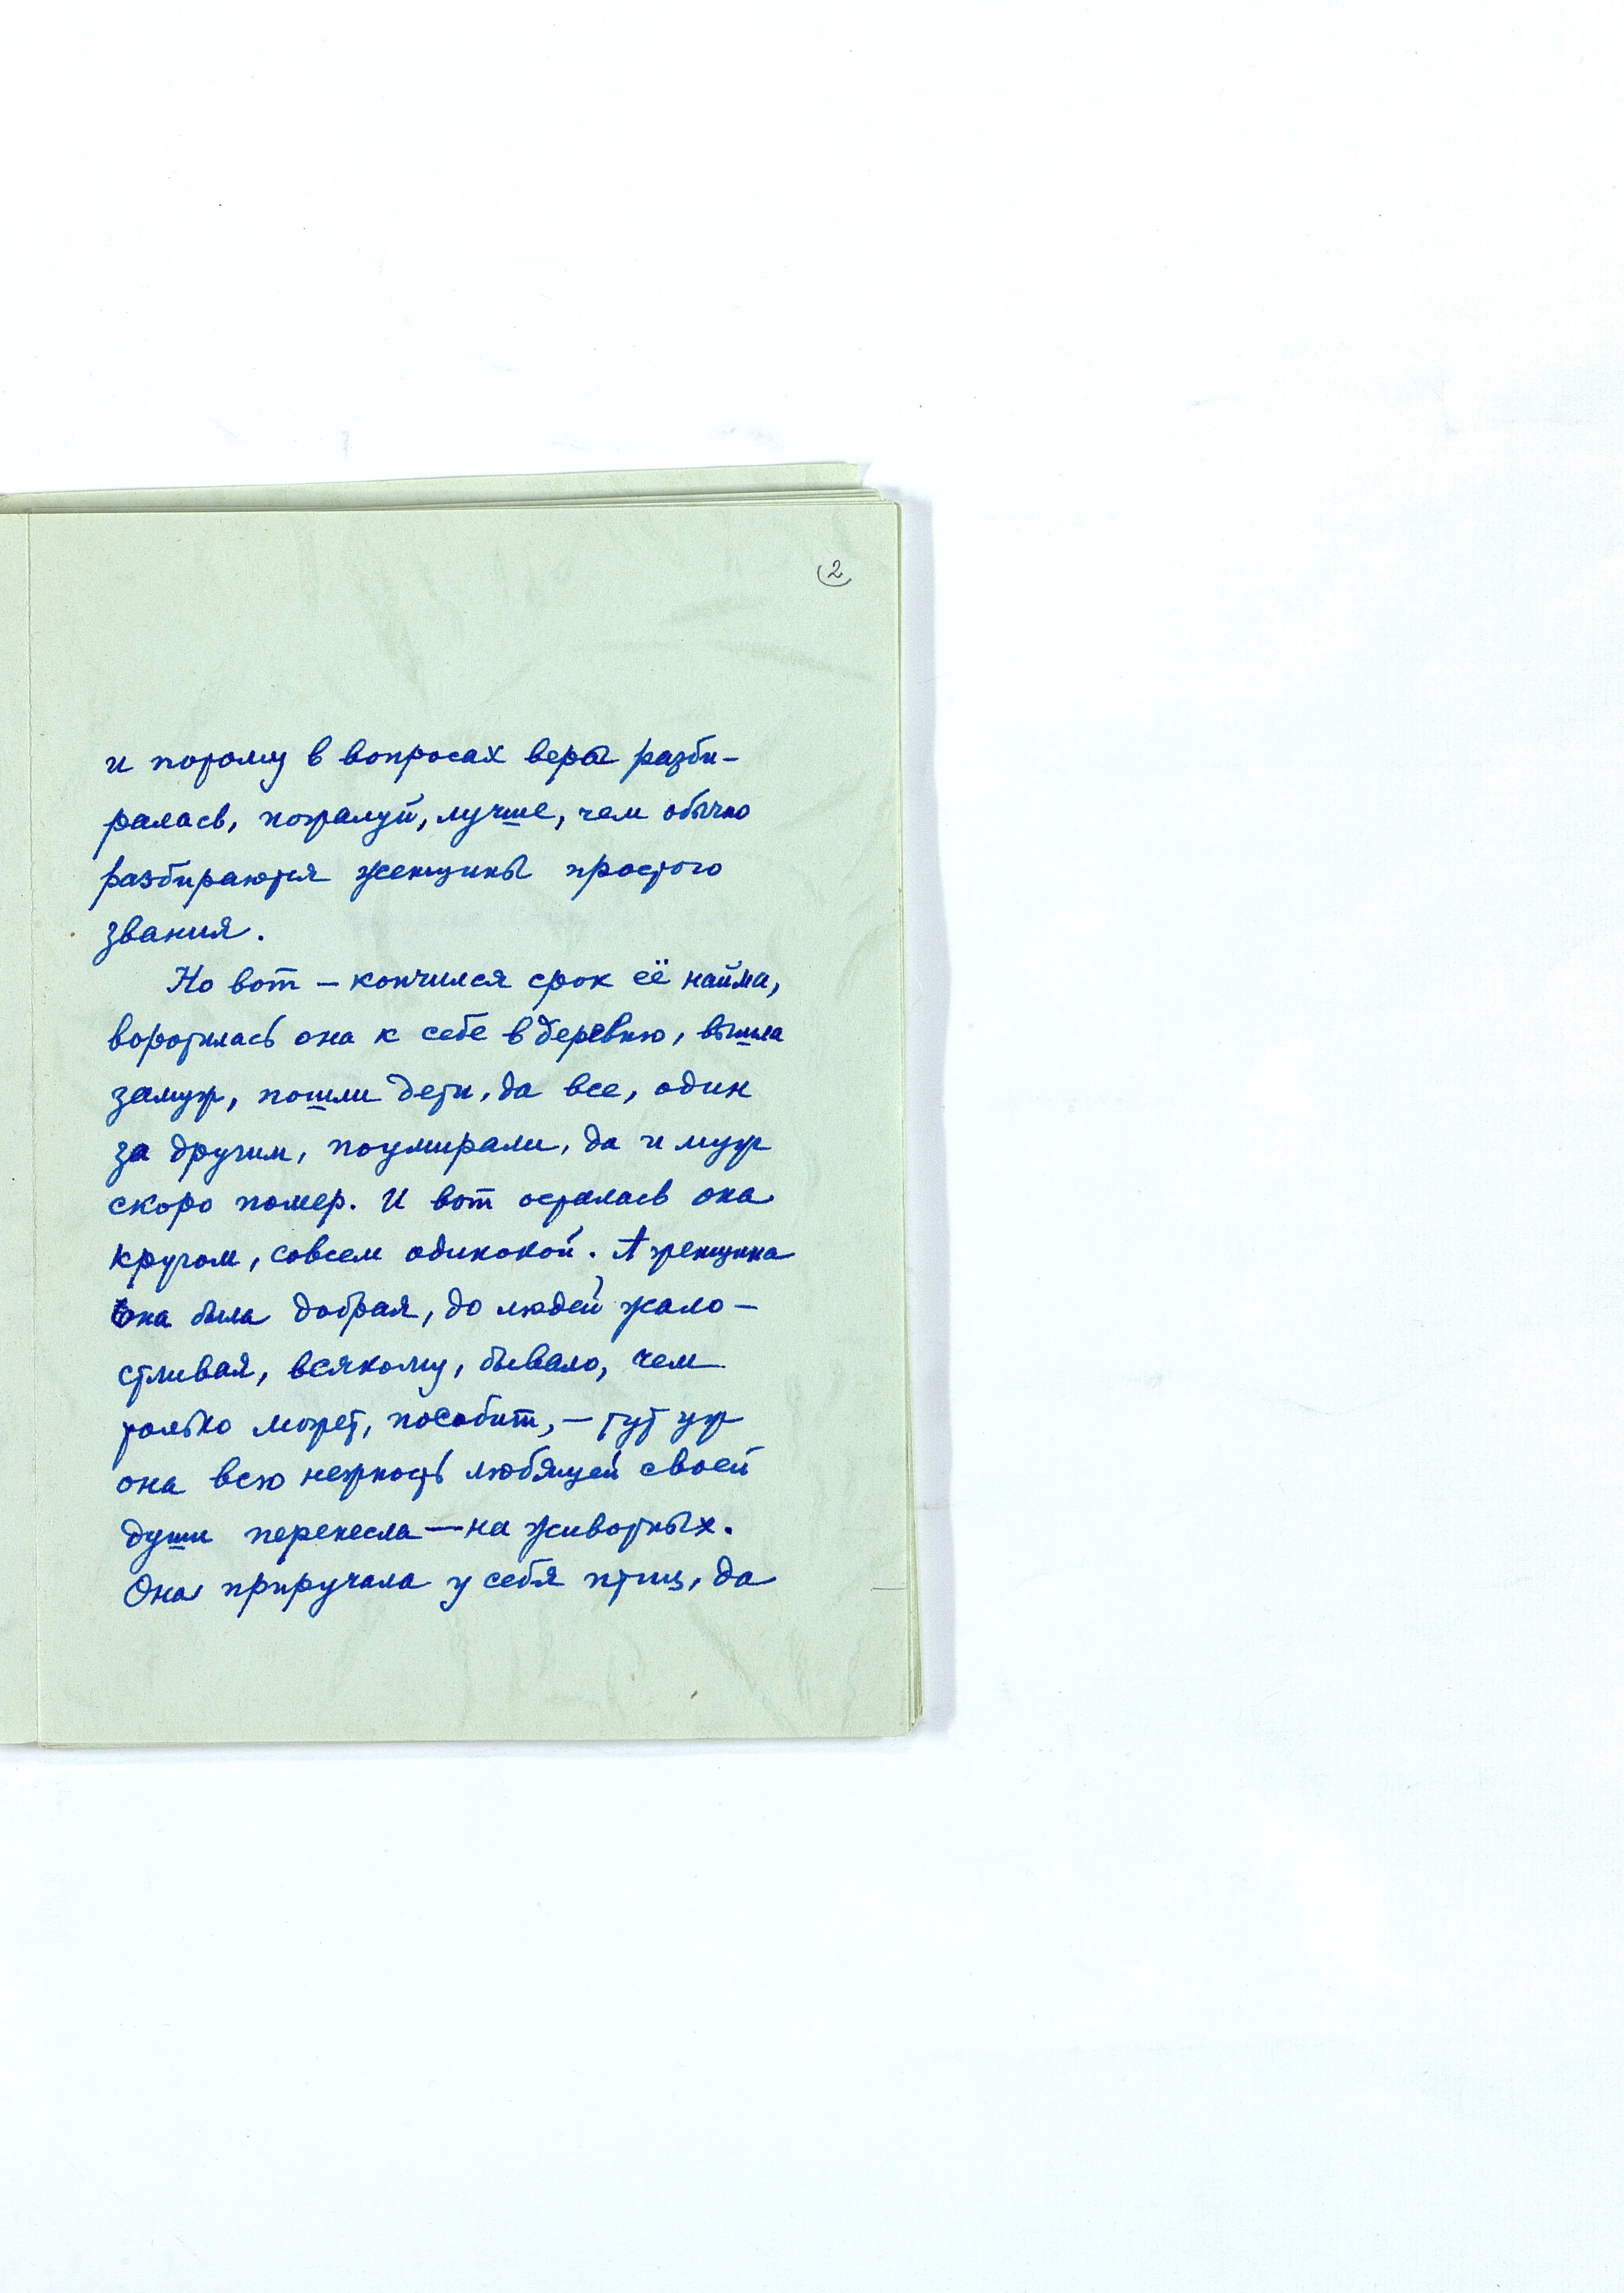 2
и потому в вопросах веры разби-
ралась, пожалуй, лучше, чем обычно
разбираются женщины простого
звания.
Но вот – кончился срок её найма,
воротилась она к себе в деревню, вышла
замуж, пошли дети, да все, один
за другим, поумирали, да и муж
скоро помер. И вот осталась она
кругом, совсем одинокой. А женщина
она была добрая, до людей жало-
стливая, всякому, бывало, чем
только может, пособит, – тут уж
она всю нежность любящей своей
души перенесла — на животных.
Она приручала у себя птиц, да